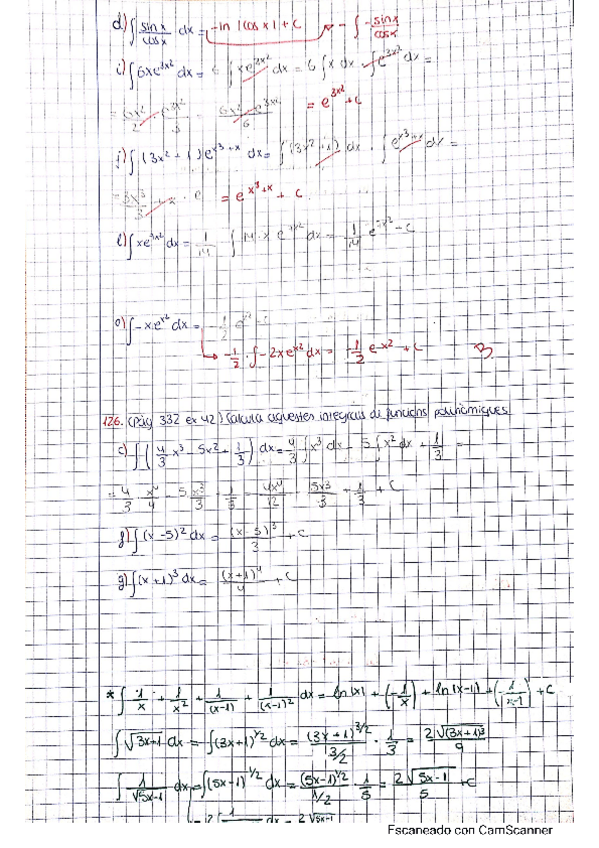 d) ∫ sinx/cosx dx = -ln |cos x| + C → - ∫ -sinx/cosx
i) ∫ 6xe^3x² dx = 6 ∫ xe^3x² dx = 6 ∫ x dx · ∫ e^3x² dx =
= 6x²/2 · e^3x²/3 = 6x² e^3x²/6 = e^3x² + C
j) ∫ (3x² + 1) e^x³+x dx = ∫ (3x² + 1) dx · ∫ e^x³+x dx =
= 3x³/3 + x · e = e^x³+x + C
l) ∫ xe^7x² dx = 1/14 ∫ 14·x e^7x² dx = 1/14 e^7x² + C
o) ∫ -xe^x² dx = -1/2 e^x²
→ -1/2 · ∫ -2xe^x² dx = -1/2 e^-x² + C B.
126. (Pàg 332 ex 42) Calcula aquestes integrals de funcions polinòmiques
c) ∫ (4/3 x³ - 5x² + 1/3) dx = 4/3 ∫ x³ dx - 5 ∫ x² dx + 1/3 =
= 4/3 · x⁴/4 - 5 x³/3 + 1/3 = 4x⁴/12 - 5x³/3 + 1/3 + C
f) ∫ (x-5)² dx = (x-5)³/3 + C
g) ∫ (x+1)³ dx = (x+1)⁴/4 + C
* ∫ 1/x + 1/x² + 1/(x-1) + 1/(x-1)² dx = ln|x| + (-1/x) + ln(x-1) + (-1/x-1) + C
∫ √3x+1 dx = ∫ (3x+1)^1/2 dx = (3x+1)^3/2 / 3/2 · 1/3 = 2√(3x+1)³/9
∫ 1/√5x-1 dx = ∫ (5x-1)^1/2 dx = (5x-1)^1/2 / 1/2 · 1/5 = 2√5x-1/5 + C
Escaneado con CamScanner